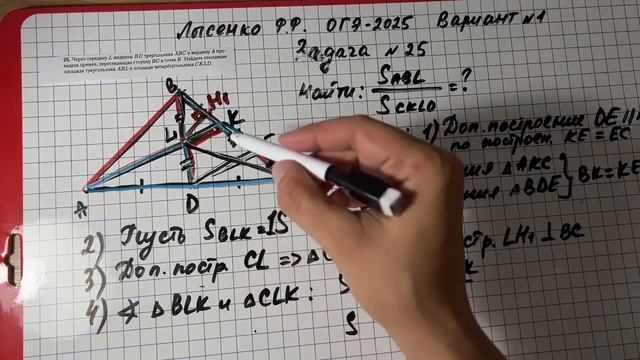 Лысенко Ф.Ф. ОГЭ-2025 Вариант №1
Задача №25
25. Через середину L медианы BD треугольника ABC и вершину A про-
ведена прямая, пересекающая сторону BC в точке K. Найдите отношение
площади треугольника ABL к площади четырёхугольника CKLD.
Найти: S ABL / S CKLD = ?
1) Доп. построение DE ||
по построен. KE = EC
ΔAKC
ΔBDE } BK = KE
B
H₁
K
L
A
D
2) Пусть S BLK = 1S
3) Доп. постр. CL => Δ
стр. LH₁ ⊥ BC
4) ∢ ΔBLK и ΔCLK: S
S